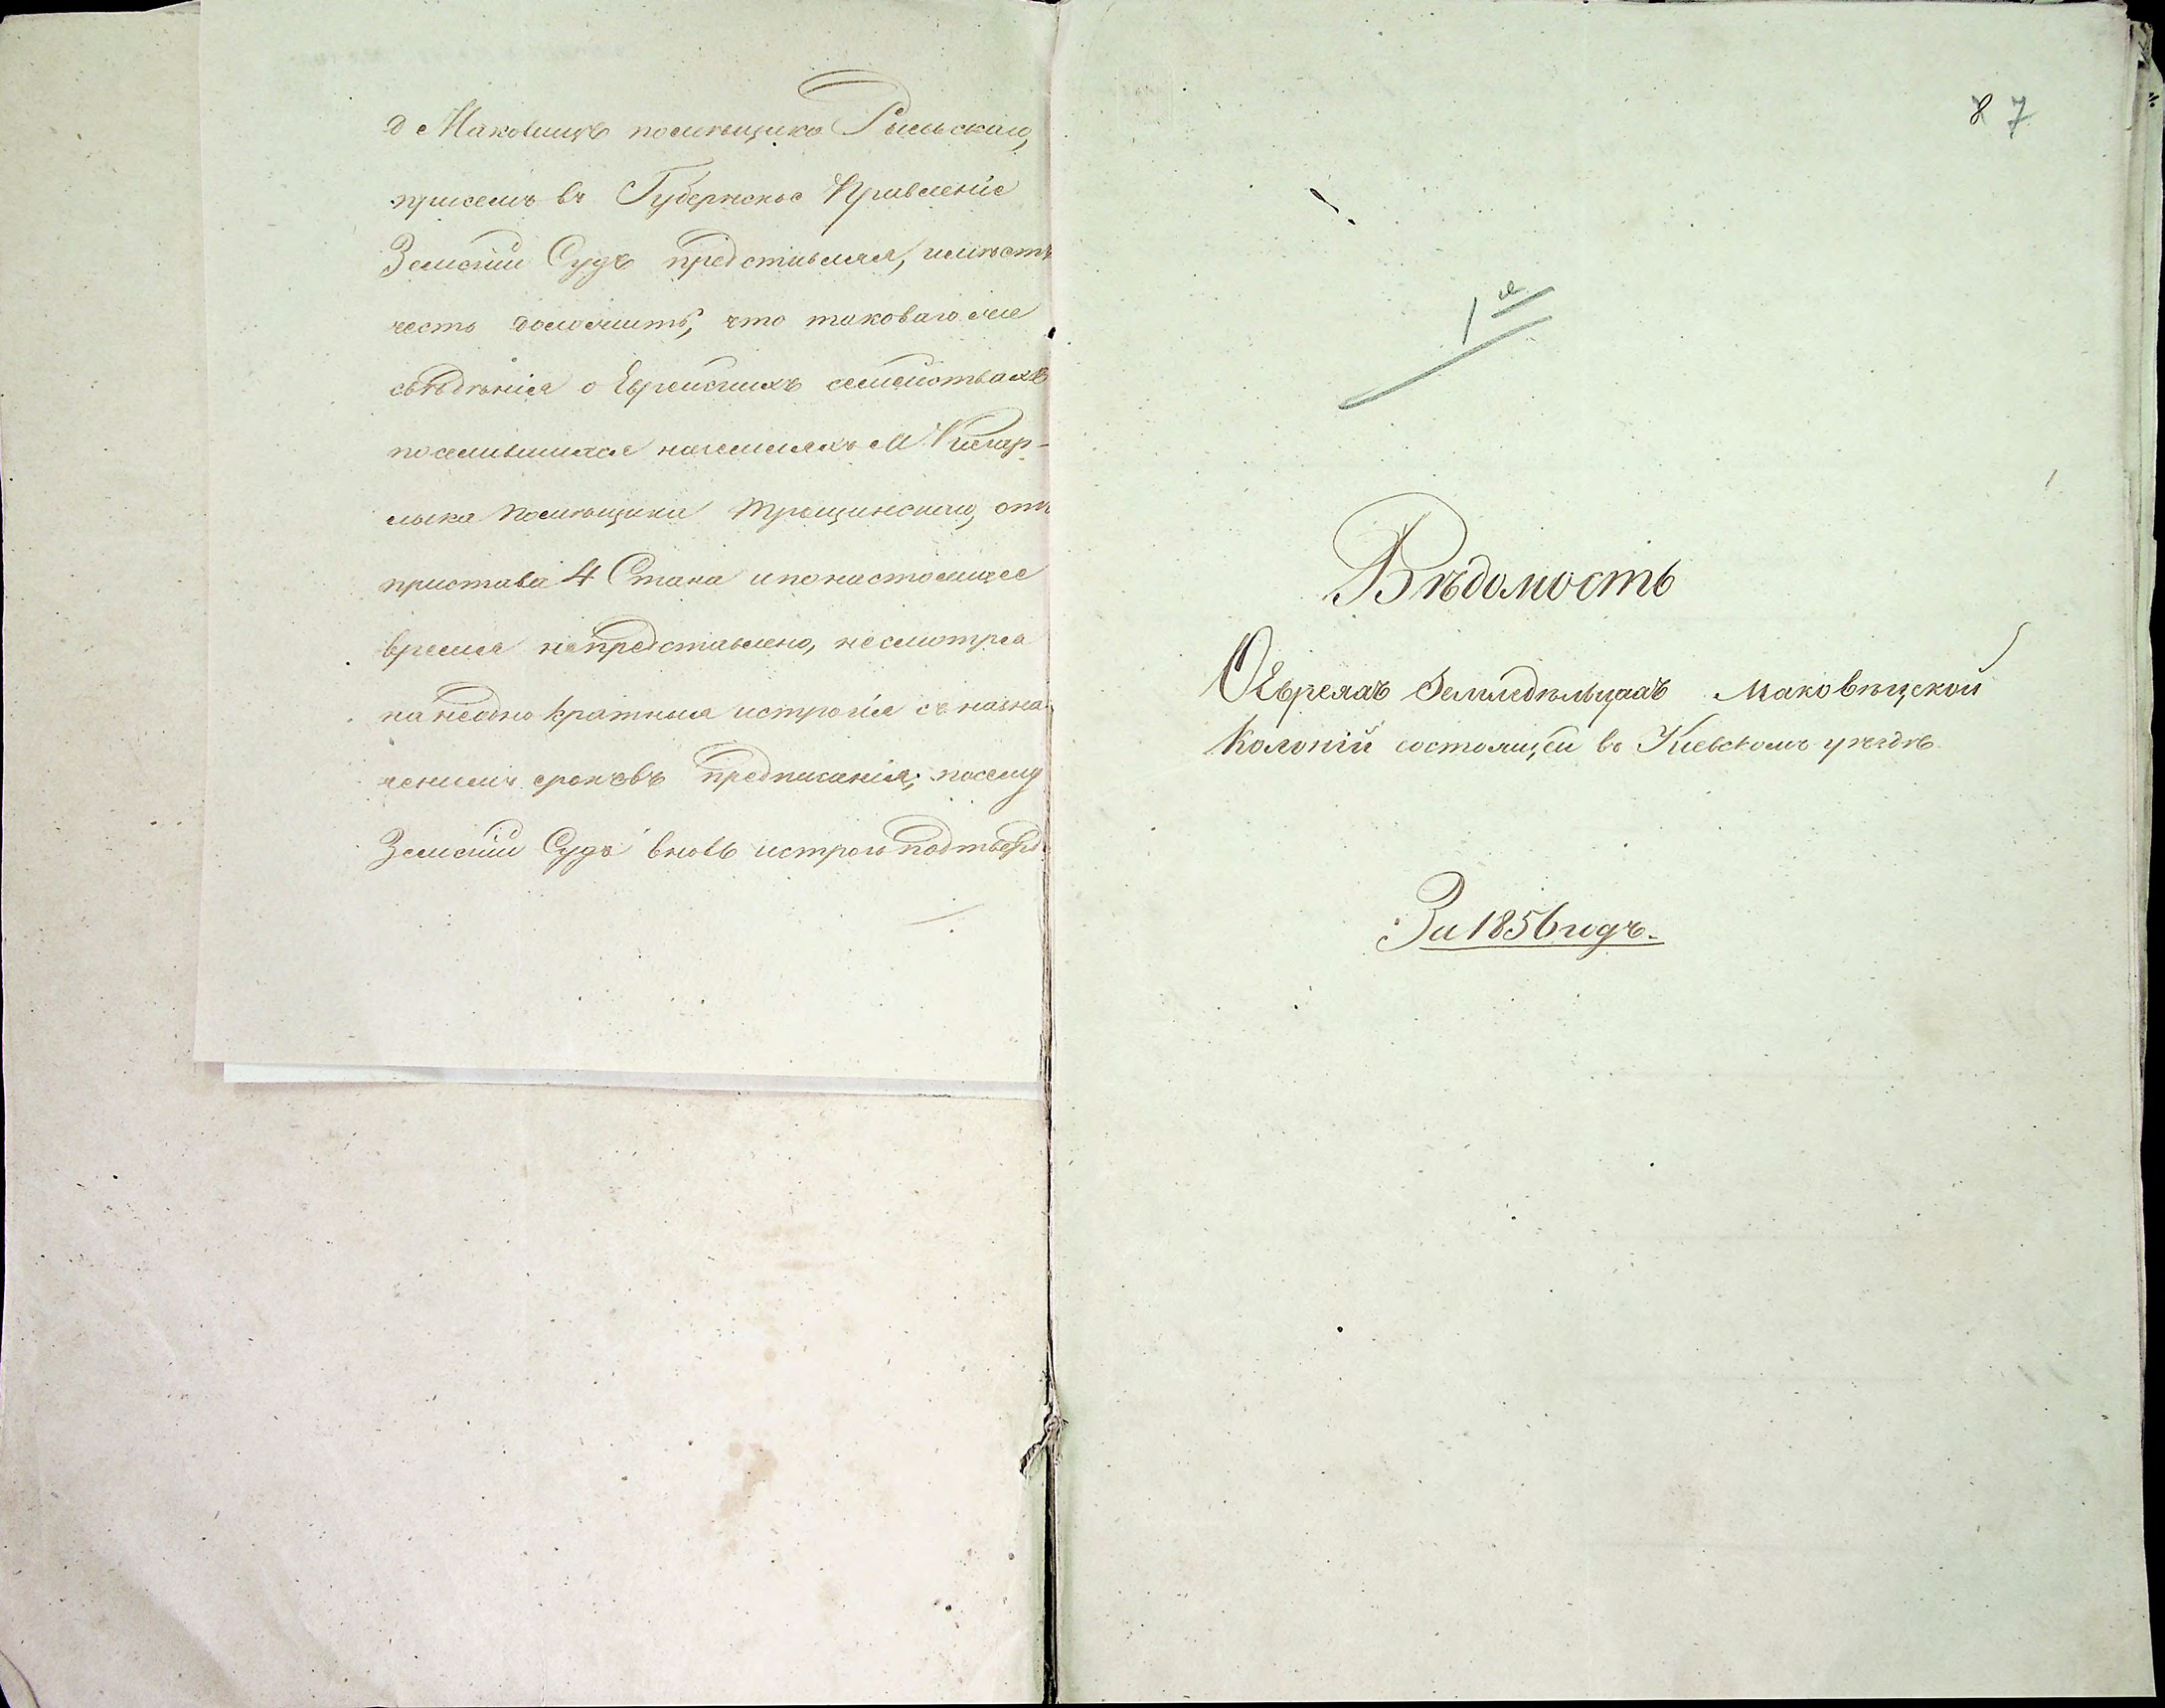 д Маковищъ помѣщика Рыльскаго,
присемъ въ Губернское Правленіе
Земскій Судъ представляя, имѣетъ
честь доложить, что таковаго же
свѣдѣнія о Еврейскихъ семействахъ
поселившихся наземляхъ М. Кагар-
лыка помѣщика Трощинскаго, отъ
пристава 4 Стана ипонастоящее
время непредставлено, несмотря
нанеодно кратныя истрогія съ назна-
ченіемъ сроковъ предписанія; посему
Земскій Судъ вновь истрого подтверд
8 7
1е
Вѣдомость
О Евреяхъ Земледѣльцахъ Маковѣцской
Колоніи состоящей въ Кіевскомъ уѣздѣ
За 1856 годъ.